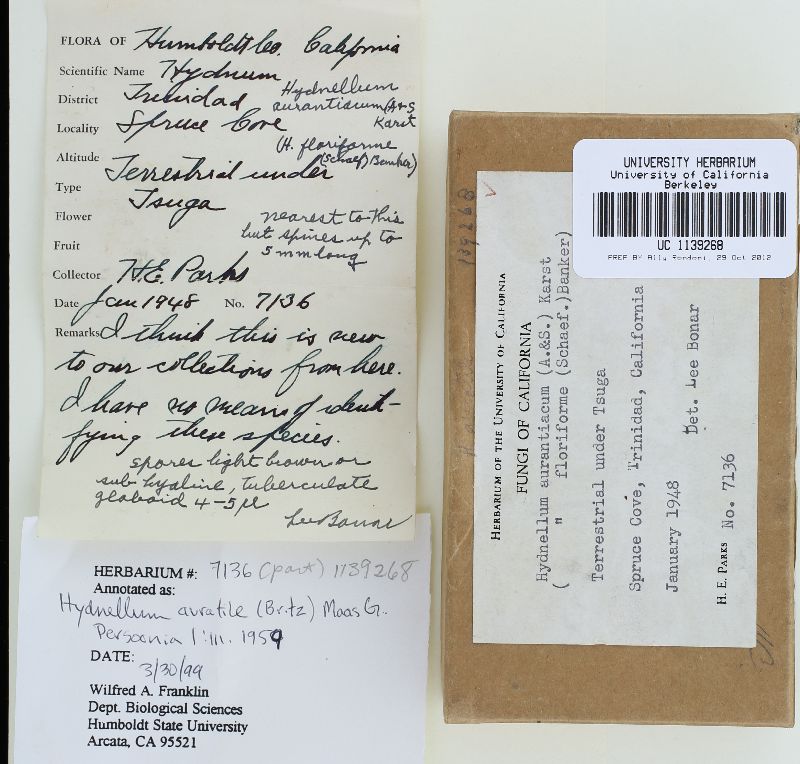 FLORA OF Humboldt Co. California
Scientific Name Hydnum
Hydnellum
District Trinidad
aurantiacum (A&S
Karst
Locality Spruce Cove
(H. floriforme
(Schaef) Banker)
Altitude
Terrestrial under
Type
Tsuga
Flower
nearest to this
but spines up to
5 mm long
Fruit
Collector H.E. Parks
Date Jan 1948 No. 7136
Remarks I think this is new
to our collections from here.
I have no means of ident-
ifying these species.
spores light brown or
sub hyaline, tuberculate
globoid 4-5µ
Lee Bonar
HERBARIUM #: 7136 (part) 1139268
Annotated as:
Hydnellum auratile (Britz) Maas G.
Persoonia 1:111. 1959
DATE:
3/30/99
Wilfred A. Franklin
Dept. Biological Sciences
Humboldt State University
Arcata, CA 95521
UNIVERSITY HERBARIUM
University of California
Berkeley
UC 1139268
29 Oct 2012
1139268
HERBARIUM OF THE UNIVERSITY OF CALIFORNIA
FUNGI OF CALIFORNIA
Hydnellum aurantiacum (A.&S.) Karst
( " floriforme (Schaef.) Banker)
Terrestrial under Tsuga
Spruce Cove, Trinidad, California
January 1948 Det. Lee Bonar
H. E. PARKS No. 7136